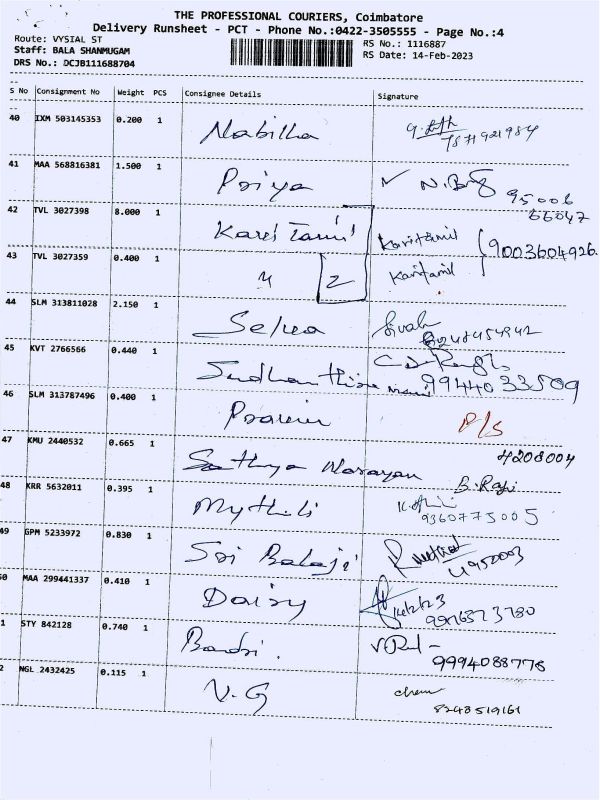 THE PROFESSIONAL COURIERS, Coimbatore
Delivery Runsheet - PCT - Phone No.:0422-3505555 - Page No.:4
Route: VYSIAL ST
RS No.: 1116887
Staff: BALA SHANMUGAM
RS Date: 14-Feb-2023
DRS No.: DCJB111688704
S No Consignment No Weight PCS Consignee Details Signature
40 IXM 503145353 0.200 1 Nabilha
41 MAA 568816381 1.500 1 Priya
95006
66047
42 TVL 3027398 8.000 1 Kavi Tamil Kavitamil
9003604926
43 TVL 3027359 0.400 1 2 Kavitamil
44 SLM 313811028 2.150 1 Selva
45 KVT 2766566 0.440 1
9944033509
46 SLM 313787496 0.400 1 Pravin P/S
47 KMU 2440532 0.665 1 Sathya Narayan
4208004
B. Raji
48 KRR 5632011 0.395 1 Mythili
9360775005
49 GPM 5233972 0.830 1 Sri Balaji
4950003
0 MAA 299441337 0.410 1 Daisy
1 STY 842128 0.740 1
9994088776
2 NGL 2432425 0.115 1 V. G
8248519161